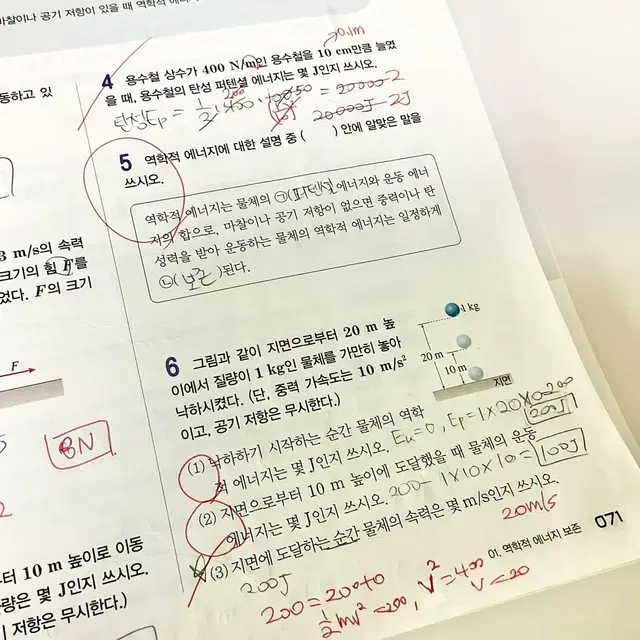 마찰이나 공기 저항이 있을 때 역학적 에너지
동하고 있
3 m/s의 속력
크기의 힘 F를
었다. F의 크기
F
8N
터 10 m 높이로 이동
량은 몇 J인지 쓰시오.
기 저항은 무시한다.)
4 용수철 상수가 400 N/m인 용수철을 10 cm만큼 늘였
0.1m
을 때, 용수철의 탄성 퍼텐셜 에너지는 몇 J인지 쓰시오.
탄성Ep = 1/2 · 400 · = 20000 - 2
200
20000J - 2J
5 역학적 에너지에 대한 설명 중 ( ) 안에 알맞은 말을
쓰시오.
역학적 에너지는 물체의 ㉠(퍼텐셜)에너지와 운동 에너
지의 합으로, 마찰이나 공기 저항이 없으면 중력이나 탄
성력을 받아 운동하는 물체의 역학적 에너지는 일정하게
㉡(보존)된다.
6 그림과 같이 지면으로부터 20 m 높
이에서 질량이 1 kg인 물체를 가만히 놓아
낙하시켰다. (단, 중력 가속도는 10 m/s²
이고, 공기 저항은 무시한다.)
1 kg
20 m
10 m
지면
(1) 낙하하기 시작하는 순간 물체의 역학
적 에너지는 몇 J인지 쓰시오.
=0, Ep=1×20×10=200
200J
(2) 지면으로부터 10 m 높이에 도달했을 때 물체의 운동
에너지는 몇 J인지 쓰시오. 200- 1×10×10= 100J
(3) 지면에 도달하는 순간 물체의 속력은 몇 m/s인지 쓰시오.
200J
20m/s
200=200+0
1/2mv²=200, v²=400
v=20
01. 역학적 에너지 보존 071